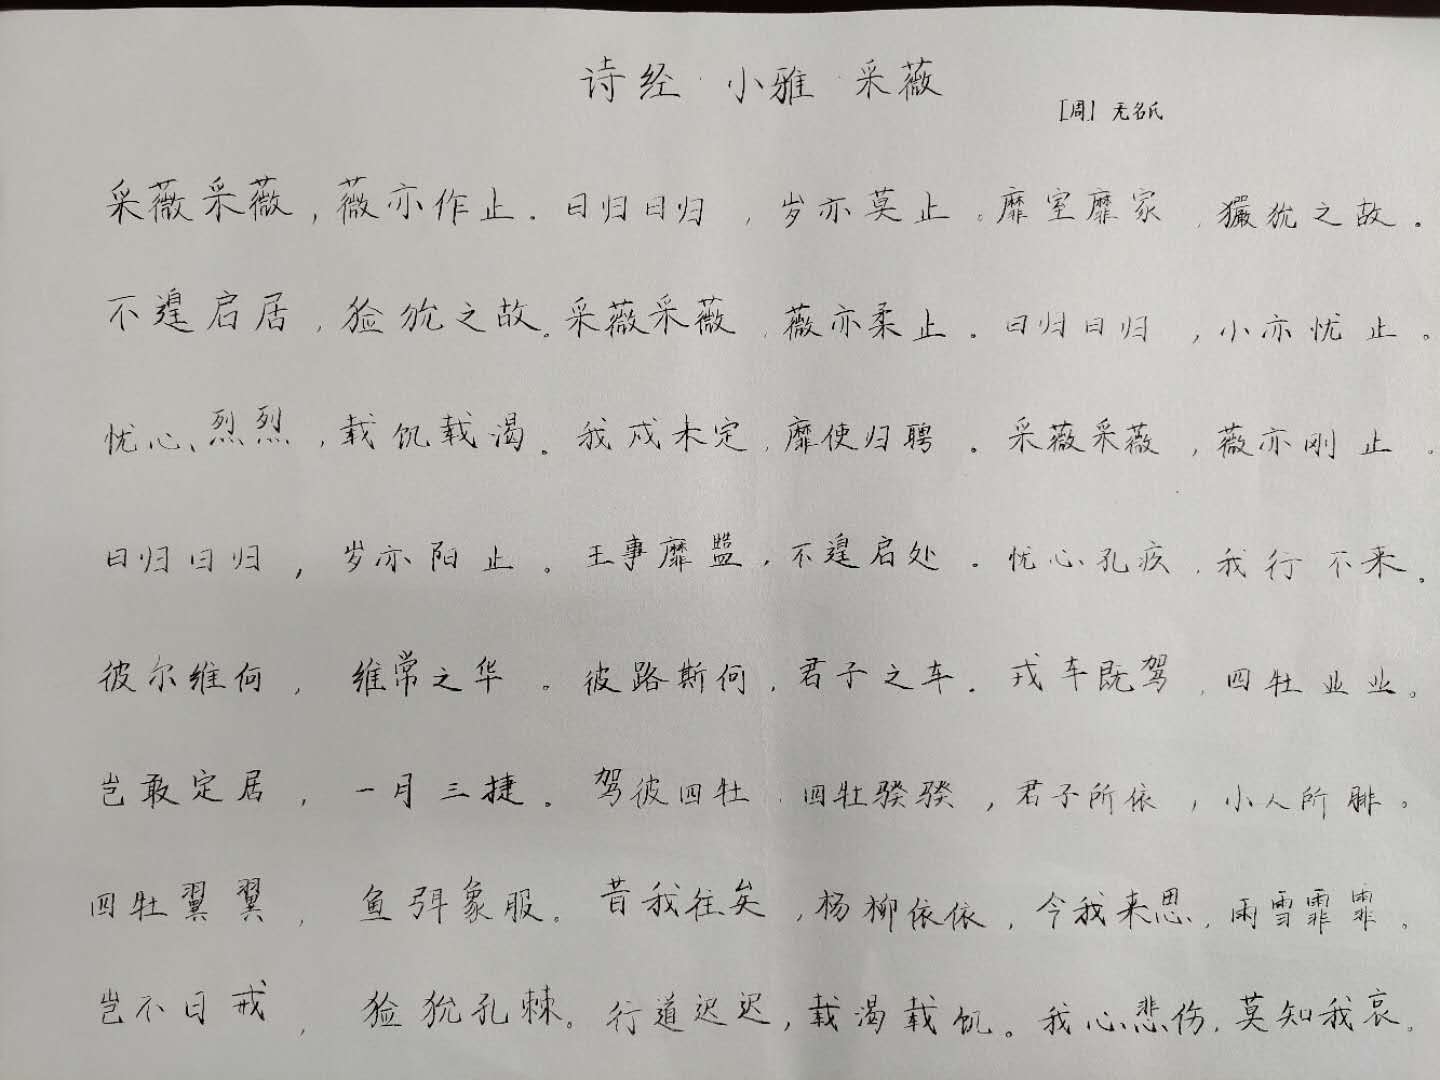 诗经·小雅 采薇
[周] 无名氏
采薇采薇，薇亦作止。曰归曰归，岁亦莫止。靡室靡家，玁狁之故。
不遑启居，猃狁之故。采薇采薇，薇亦柔止。曰归曰归，小亦忧止。
忧心烈烈，载饥载渴。我戍未定，靡使归聘。采薇采薇，薇亦刚止。
曰归曰归，岁亦阳止。王事靡盬，不遑启处。忧心孔疚，我行不来。
彼尔维何，维常之华。彼路斯何，君子之车。戎车既驾，四牡业业。
岂敢定居，一月三捷。驾彼四牡，四牡骙骙，君子所依，小人所腓。
四牡翼翼，鱼弭象服。昔我往矣，杨柳依依，今我来思，雨雪霏霏。
岂不日戒，猃狁孔棘。行道迟迟，载渴载饥。我心悲伤，莫知我哀。